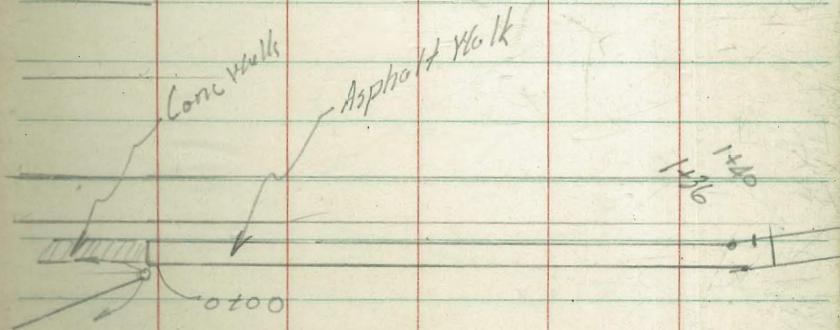 Conc Walk
Asphalt Walk
1+36
1+40
0+00